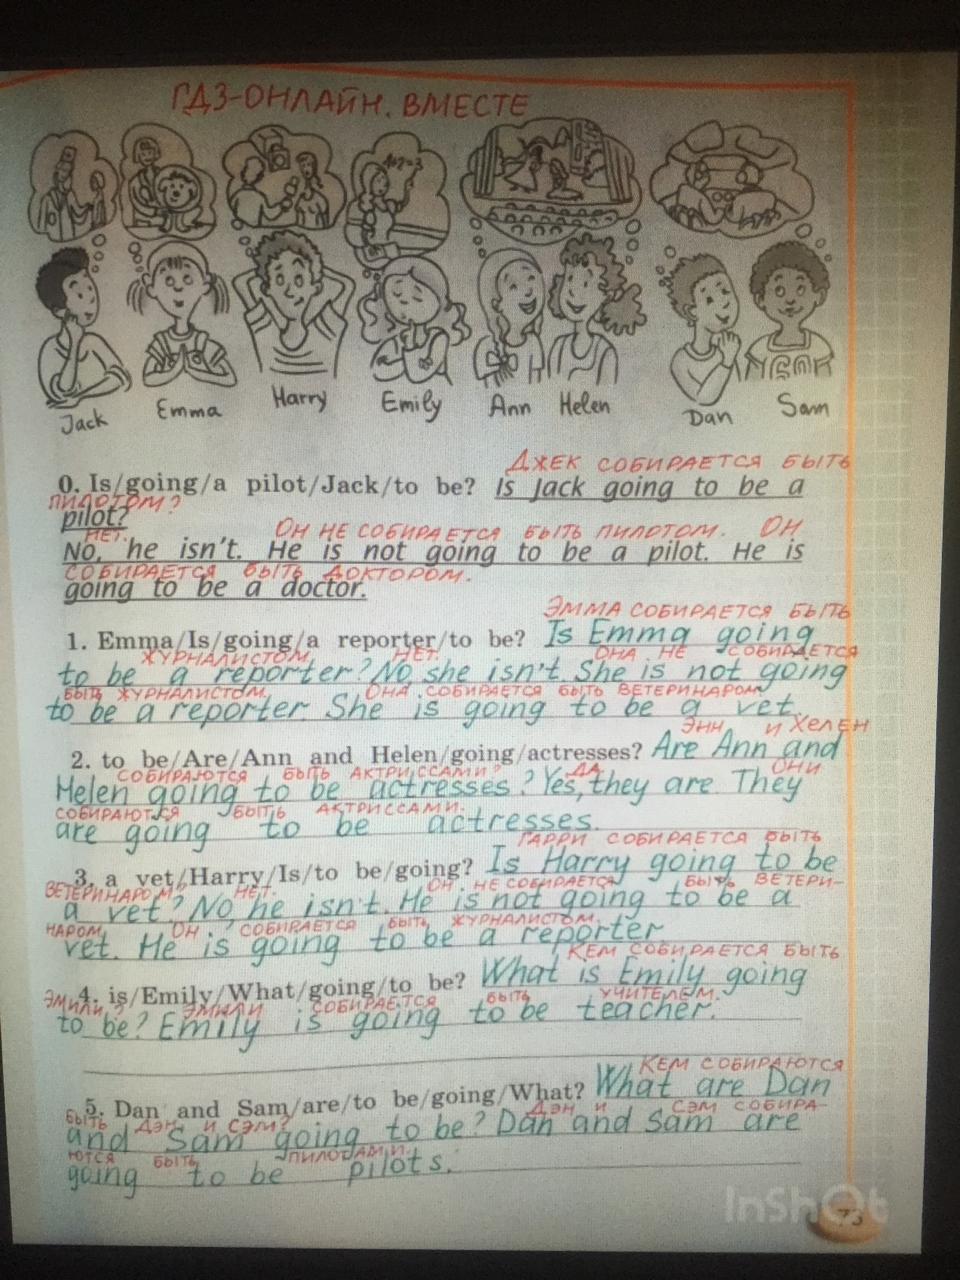 ГДЗ-ОНЛАЙН. ВМЕСТЕ
1+2=3
SAM
Jack Emma Harry Emily Ann Helen Dan Sam
ДЖЕК СОБИРАЕТСЯ БЫТЬ
0. Is/going/a pilot/Jack/to be? Is Jack going to be a
ПИЛОТОМ?
pilot?
НЕТ. ОН НЕ СОБИРАЕТСЯ БЫТЬ ПИЛОТОМ. ОН
No, he isn't. He is not going to be a pilot. He is
СОБИРАЕТСЯ БЫТЬ ДОКТОРОМ.
going to be a doctor.
ЭММА СОБИРАЕТСЯ БЫТЬ
1. Emma/Is/going/a reporter/to be? Is Emma going
ЖУРНАЛИСТОМ НЕТ. ОНА НЕ СОБИРАЕТСЯ
to be a reporter? No she isn't. She is not going
БЫТЬ ЖУРНАЛИСТОМ. ОНА СОБИРАЕТСЯ БЫТЬ ВЕТЕРИНАРОМ
to be a reporter. She is going to be a vet.
ЭНН И ХЕЛЕН
2. to be/Are/Ann and Helen/going/actresses? Are Ann and
СОБИРАЮТСЯ БЫТЬ АКТРИССАМИ? ДА ОНИ
Helen going to be actresses? Yes, they are. They
СОБИРАЮТСЯ БЫТЬ АКТРИССАМИ.
are going to be actresses.
ГАРРИ СОБИРАЕТСЯ БЫТЬ
3. a vet/Harry/Is/to be/going? Is Harry going to be
ВЕТЕРИНАРОМ? НЕТ. ОН НЕ СОБИРАЕТСЯ БЫТЬ ВЕТЕРИ-
a vet? No he isn't. He is not going to be a
НАРОМ. ОН СОБИРАЕТСЯ БЫТЬ ЖУРНАЛИСТОМ.
vet. He is going to be a reporter
КЕМ СОБИРАЕТСЯ БЫТЬ
4. is/Emily/What/going/to be? What is Emily going
ЭМИЛИ? ЭМИЛИ СОБИРАЕТСЯ БЫТЬ УЧИТЕЛЕМ.
to be? Emily is going to be teacher.
КЕМ СОБИРАЮТСЯ
5. Dan and Sam/are/to be/going/What? What are Dan
БЫТЬ ДЭН И СЭМ? ДЭН И СЭМ СОБИРА-
and Sam going to be? Dan and Sam are
ЮТСЯ БЫТЬ ПИЛОТАМИ.
going to be pilots.
InShOt
73